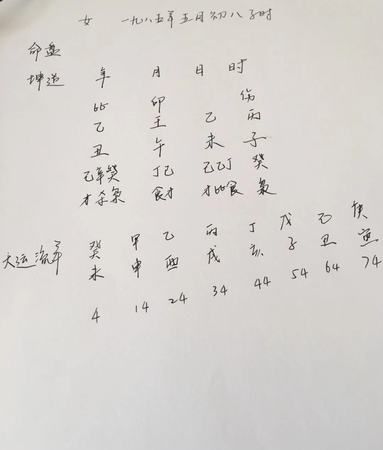 女 一九八五年五月初八子时
命盘
坤造 年 月 日 时
比 卯 伤
乙 壬 乙 丙
丑 午 未 子
己辛癸 丁己 己乙丁 癸
才杀枭 食才 才比食 枭
大运流年 癸 甲 乙 丙 丁 戊 己 庚
未 申 酉 戌 亥 子 丑 寅
4 14 24 34 44 54 64 74